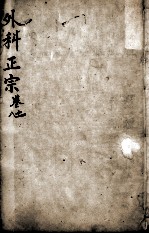 外科正宗
卷